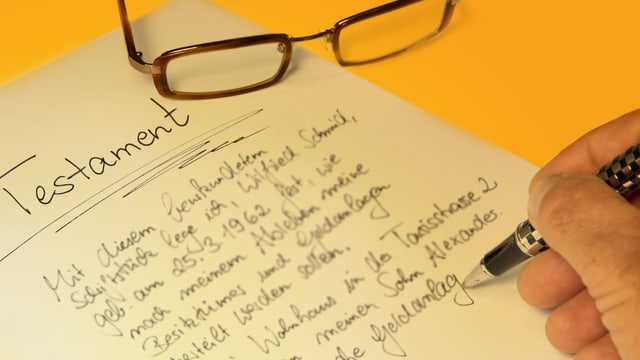 Testament
Mit diesem beurkundetem
Schriftstück lege ich, Wilfried Schmid,
geb. am 25.3.1962 fest, wie
nach meinem Ableben meine
Besitztümer und Geldanlagen
werden sollen.
Wohnhaus in der Taxisstrasse 2
meinen Sohn Alexander.
Geldanlag